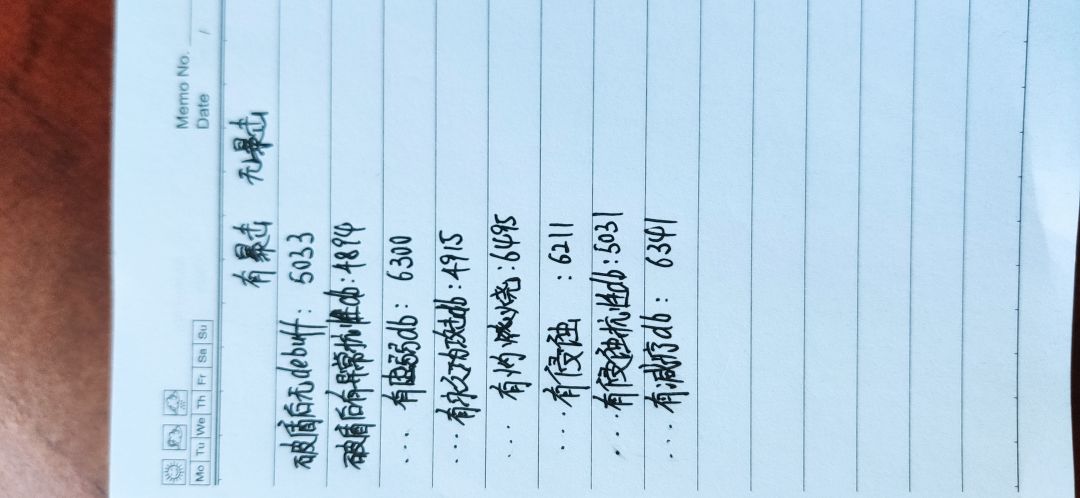 Memo No.
Date /
Mo Tu We Th Fr Sa Su
有暴击 无暴击
破盾后无debuff: 5033
破盾后有异常抗性db:4894
... 有虚弱db: 6300
... 有水力攻击db:4915
... 有灼燃烧:6495
... 有侵蚀 :6211
... 有侵蚀抗性db:5031
... 有减疗db: 6341